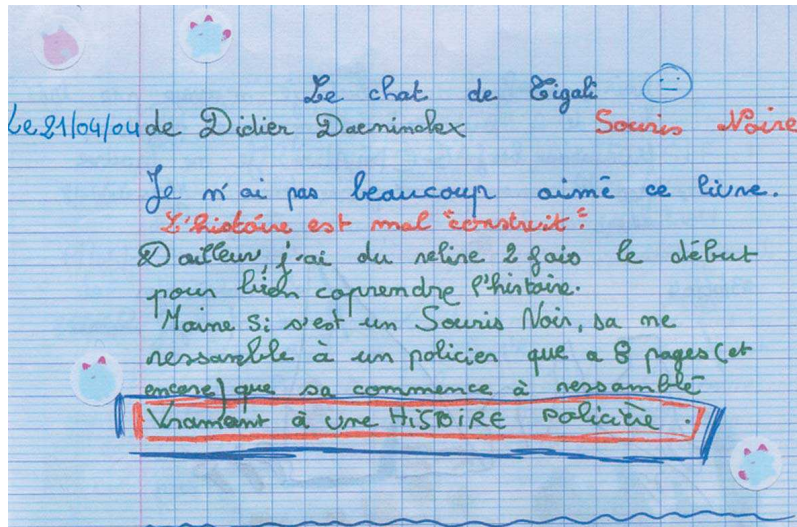 Le chat de Tigali
Le 21/04/04 de Didier Daeninckx Souris Noire
Je n'ai pas beaucoup aimé ce livre.
L'histoire est mal "construit".
D'ailleur, j'ai du relire 2 fois le début
pour bien coprendre l'histoire.
Maime si s'est un Souris Noir, sa ne
ressamble à un policier que a 8 pages (et
encore) que sa commence à ressamblé
Vramant à une HiSTOiRE policière.